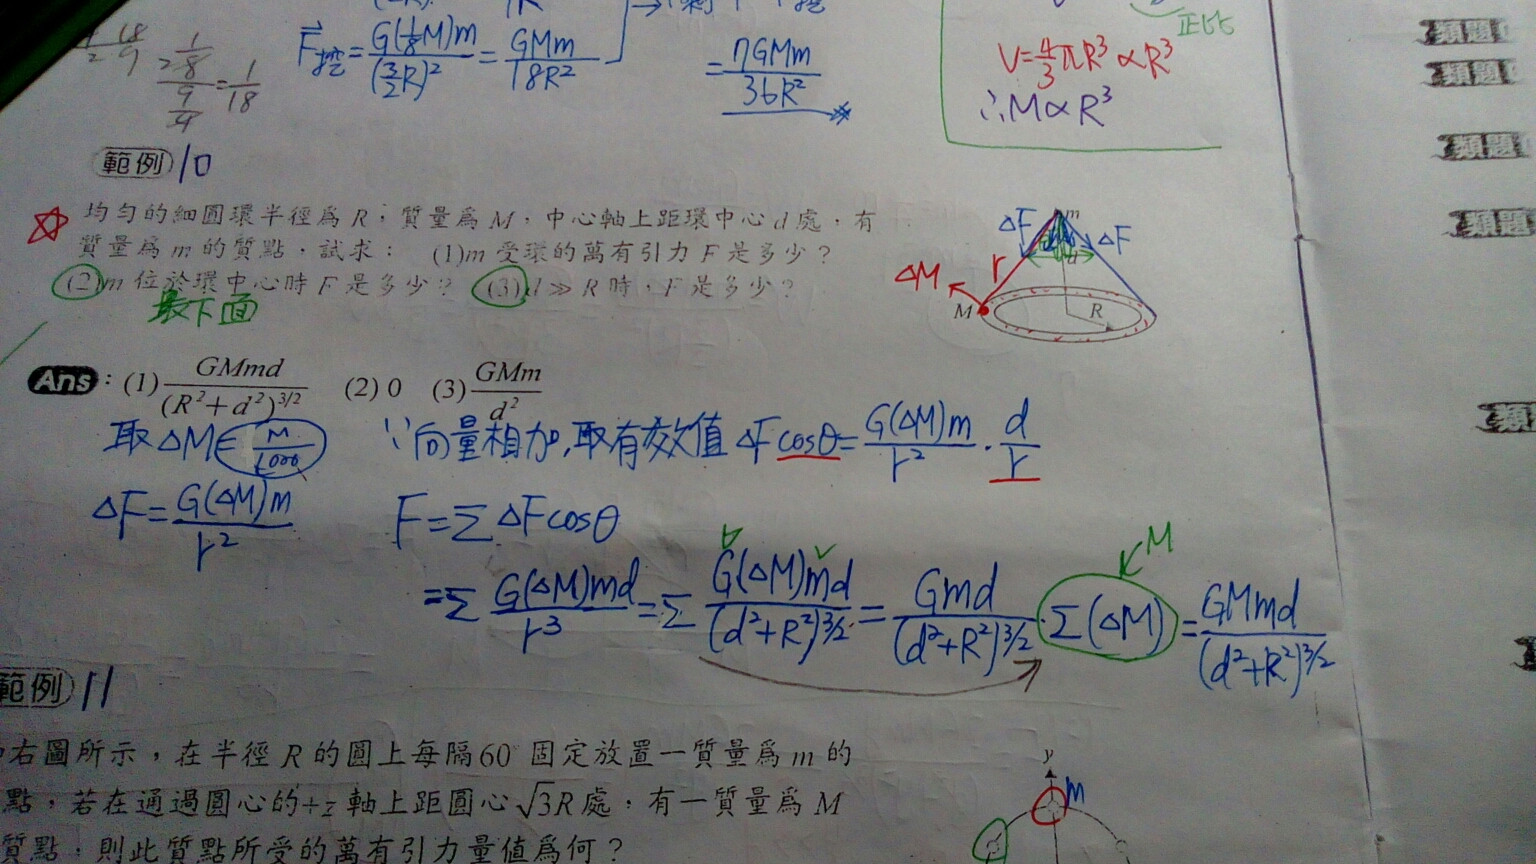 F挖 = G(1/8 M)m / (3/2 R)² = GMm / 18R²
= 7GMm / 36R²
1/8 / 9/4 = 1/18
正比
V = 4/3 πR³ ∝ R³
∴ M ∝ R³
類題
類題
類題
類題
範例 10
均勻的細圓環半徑為 R,質量為 M,中心軸上距環中心 d 處,有
質量為 m 的質點,試求: (1)m 受環的萬有引力 F 是多少?
(2)m 位於環中心時 F 是多少? (3)d ≫ R 時,F 是多少?
最下面
ΔF m ΔF
ΔM r
M R
Ans : (1) GMmd / (R²+d²)^3/2 (2) 0 (3) GMm / d²
取 ΔM ∈ M/1000 ∵向量相加,取有效值 ΔF cosθ = G(ΔM)m / r² · d / r
ΔF = G(ΔM)m / r² F = Σ ΔF cosθ
= Σ G(ΔM)md / r³ = Σ G(ΔM)md / (d²+R²)^3/2 = Gmd / (d²+R²)^3/2 · Σ(ΔM) = GMmd / (d²+R²)^3/2
M
範例 11
右圖所示,在半徑 R 的圓上每隔60 固定放置一質量為 m 的
點,若在通過圓心的+z 軸上距圓心 √3R 處,有一質量為 M
質點,則此質點所受的萬有引力量值為何?
y
m